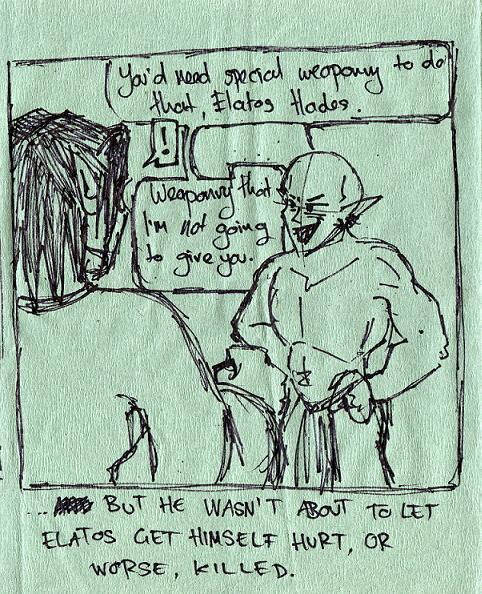 You'd need special weaponry to do
that, Elatos Hades.
!
...
Weaponry that
I'm not going
to give you.
... BUT HE WASN'T ABOUT TO LET
ELATOS GET HIMSELF HURT, OR
WORSE, KILLED.